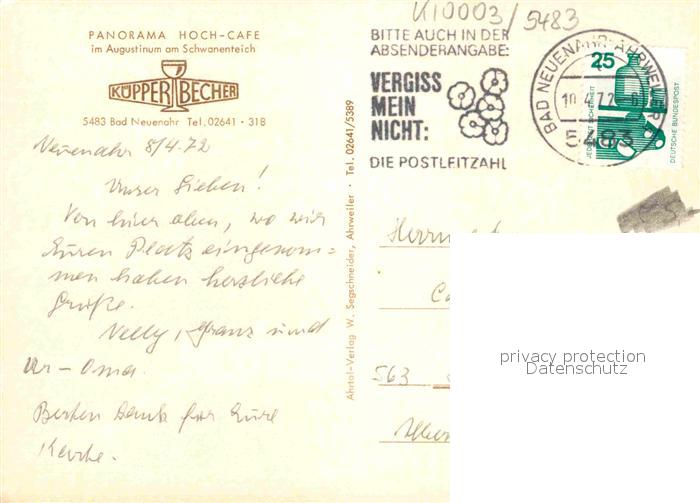 K10003/5483
PANORAMA HOCH-CAFE
im Augustinum am Schwanenteich
KÜPPER BECHER
5483 Bad Neuenahr Tel. 02641 · 318
BITTE AUCH IN DER
ABSENDERANGABE:
VERGISS
MEIN
NICHT:
DIE POSTLEITZAHL
BAD NEUENAHR-AHRWEILER
10.4.72
5483
25
JEDERZEIT SICHERHEIT
DEUTSCHE BUNDESPOST
Neuenahr 8/4.72
Unser Lieben!
Von hier oben, wo wir
Euren Platz eingenom=
men haben herzliche
Grüße.
Nelly, Franz und
Ur-Oma.
Besten Dank für Eure
Karte.
Ahrtal-Verlag W. Segschneider, Ahrweiler · Tel. 02641/5389
563
privacy protection
Datenschutz